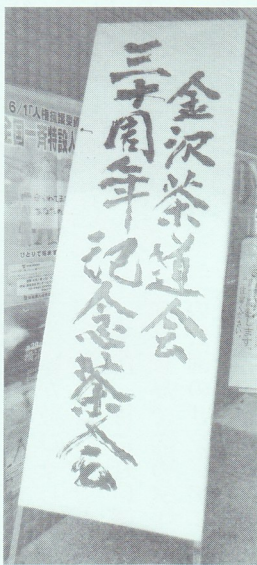 金沢茶道会
三十周年記念茶会
6/1「人権擁護委員
全国一斉特設人